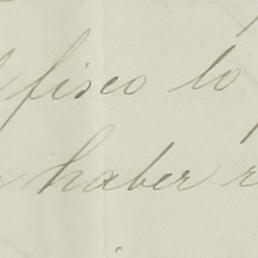 fisco lo
haber